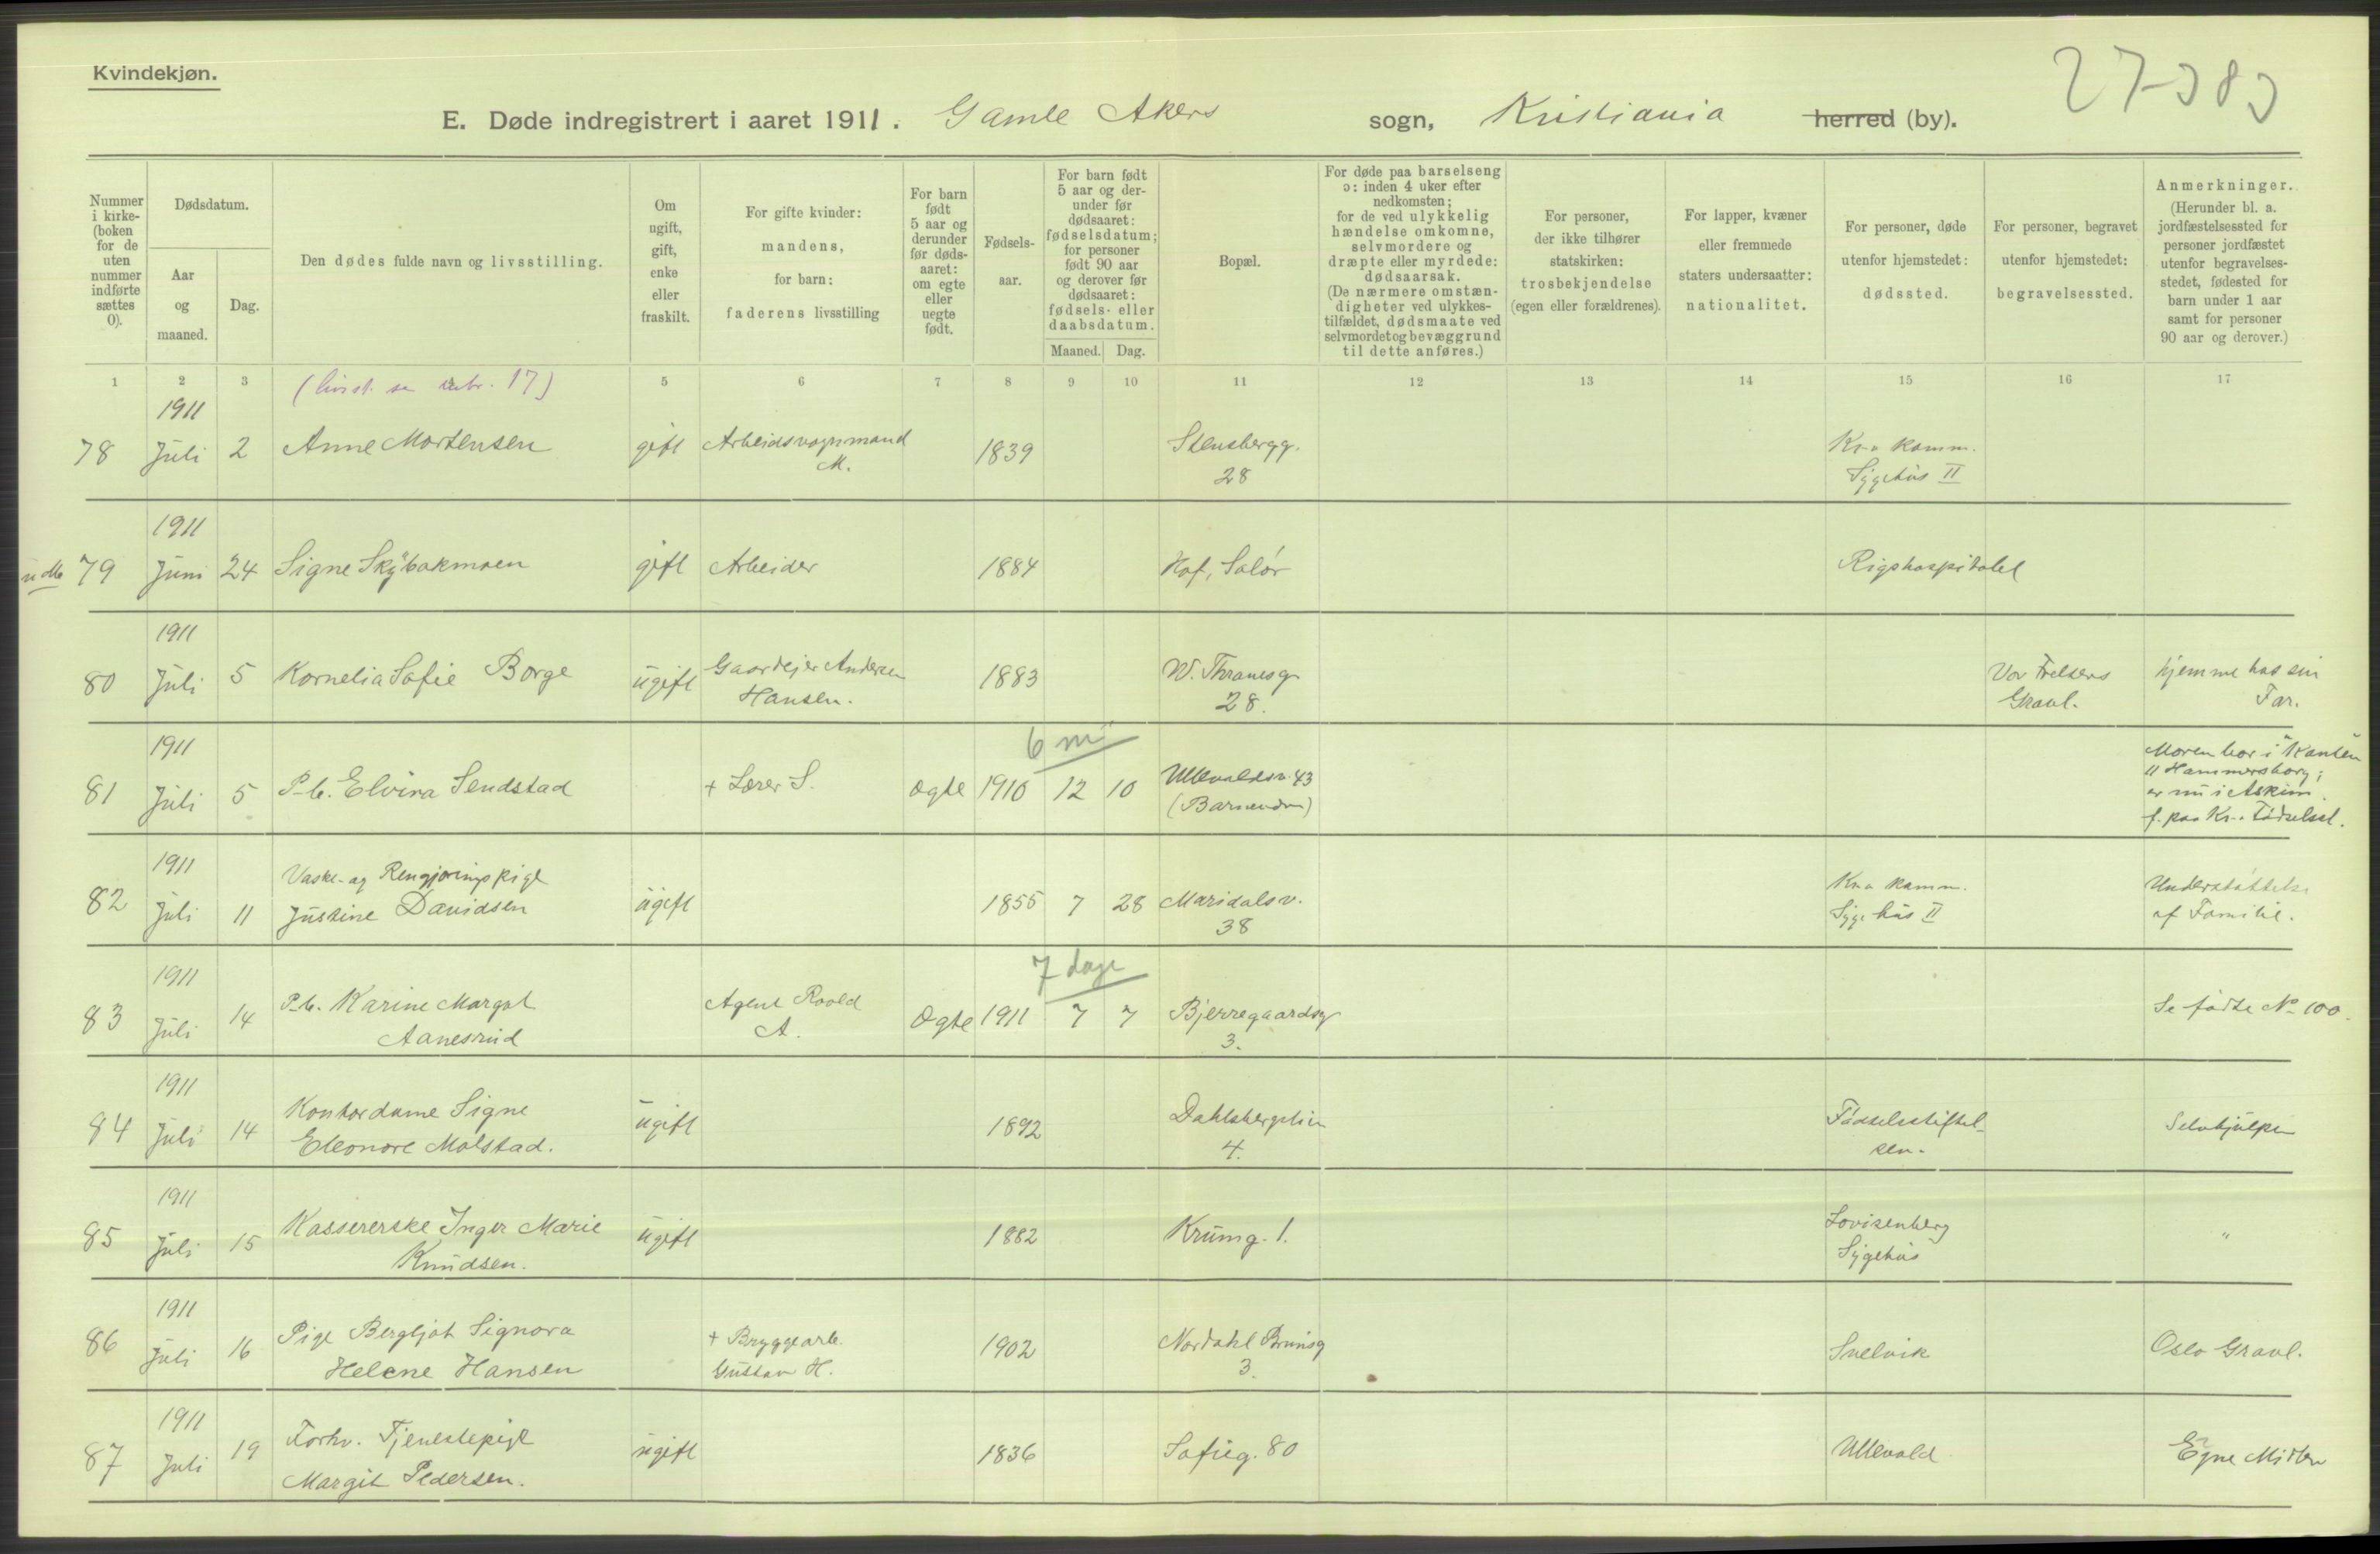 Kvindekjøn.
27-383
E. Døde indregistrert i aaret 1911. Gamle Akers sogn, Kristiania herred (by).
Nummer i kirke-(boken for de uten nummer indførte sættes 0).
Dødsdatum.
Aar og maaned.
Dag.
Den dødes fulde navn og livsstilling.
Om ugift, gift, enke eller fraskilt.
For gifte kvinder: mandens, for barn: faderens livsstilling
For barn født 5 aar og derunder før døds-aaret: om egte eller uegte født.
Fødsels-aar.
For barn født 5 aar og der-under før dødsaaret: fødselsdatum; for personer født 90 aar og derover før dødsaaret: fødsels- eller daabsdatum.
Maaned. Dag.
Bopæl.
For døde paa barselseng ɔ: inden 4 uker efter nedkomsten; for de ved ulykkelig hændelse omkomne, selvmordere og dræpte eller myrdede: dødsaarsak. (De nærmere omstæn-digheter ved ulykkes-tilfældet, dødsmaate ved selvmordet og bevæggrund til dette anføres.)
For personer, der ikke tilhører statskirken: trosbekjendelse (egen eller forældrenes).
For lapper, kvæner eller fremmede staters undersaatter: nationalitet.
For personer, døde utenfor hjemstedet: dødssted.
For personer, begravet utenfor hjemstedet: begravelsessted.
Anmerkninger. (Herunder bl. a. jordfæstelsessted for personer jordfæstet utenfor begravelses-stedet, fødested for barn under 1 aar samt for personer 90 aar og derover.)
1 2 3 (livsst. se rubr. 17) 5 6 7 8 9 10 11 12 13 14 15 16 17
1911
78 Juli 2 Anne Mortensen gift Arbeidsvognmand M. 1839 Stensbergg. 28 Kr.a komm. Sygehus II
1911
79 Juni 24 Signe Skybakmoen gift Arbeider 1884 Hof, Solør Rigshospitalet
1911
80 Juli 5 Kornelia Sofie Borge ugift Gaardejer Andersen Hansen. 1883 W. Thranesg. 28. Vor Frelsers Gravl. hjemme hos sin Far.
6 m
1911
81 Juli 5 P.b. Elvira Sendstad + Lærer S. Ægte 1910 12 10 Ullevaldsv. 43 Moren bor i "Kanten" Hammersborg; er nu i Askim. f. paa Kr.a Fødselsst.
1911
82 Juli 11 Vaske- og Rengjøringspige Justine Davidsen ugift 1855 7 28 Maridalsv. 38 Kr.a komm. Sygehus II Understøttelse af Familie.
7 dage
1911
83 Juli 14 P.b. Karine Margot Aanesrud Agent Roald A. Ægte 1911 7 7 Bjerregaardsg 3. Se fødte No 100.
1911
84 Juli 14 Kontordame Signe Eleonore Molstad. ugift 1892 Dahlsbergstien 4. Fødselsstiftelsen. Selvhjulpen
1911
85 Juli 15 Kassererske Inger Marie Knudsen. ugift 1882 Krumg. 1. Lovisenberg Sygehus "
1911
86 Juli 16 Pige Bergljot Signora Helene Hansen + Bryggearb. Gustav H. 1902 Nordahl Brunsg 3. Svelvik Oslo Gravl.
1911
87 Juli 19 Forhv. Tjenestepige Margit Pedersen. ugift 1836 Sofieg. 80 Ullevold Egne Midler